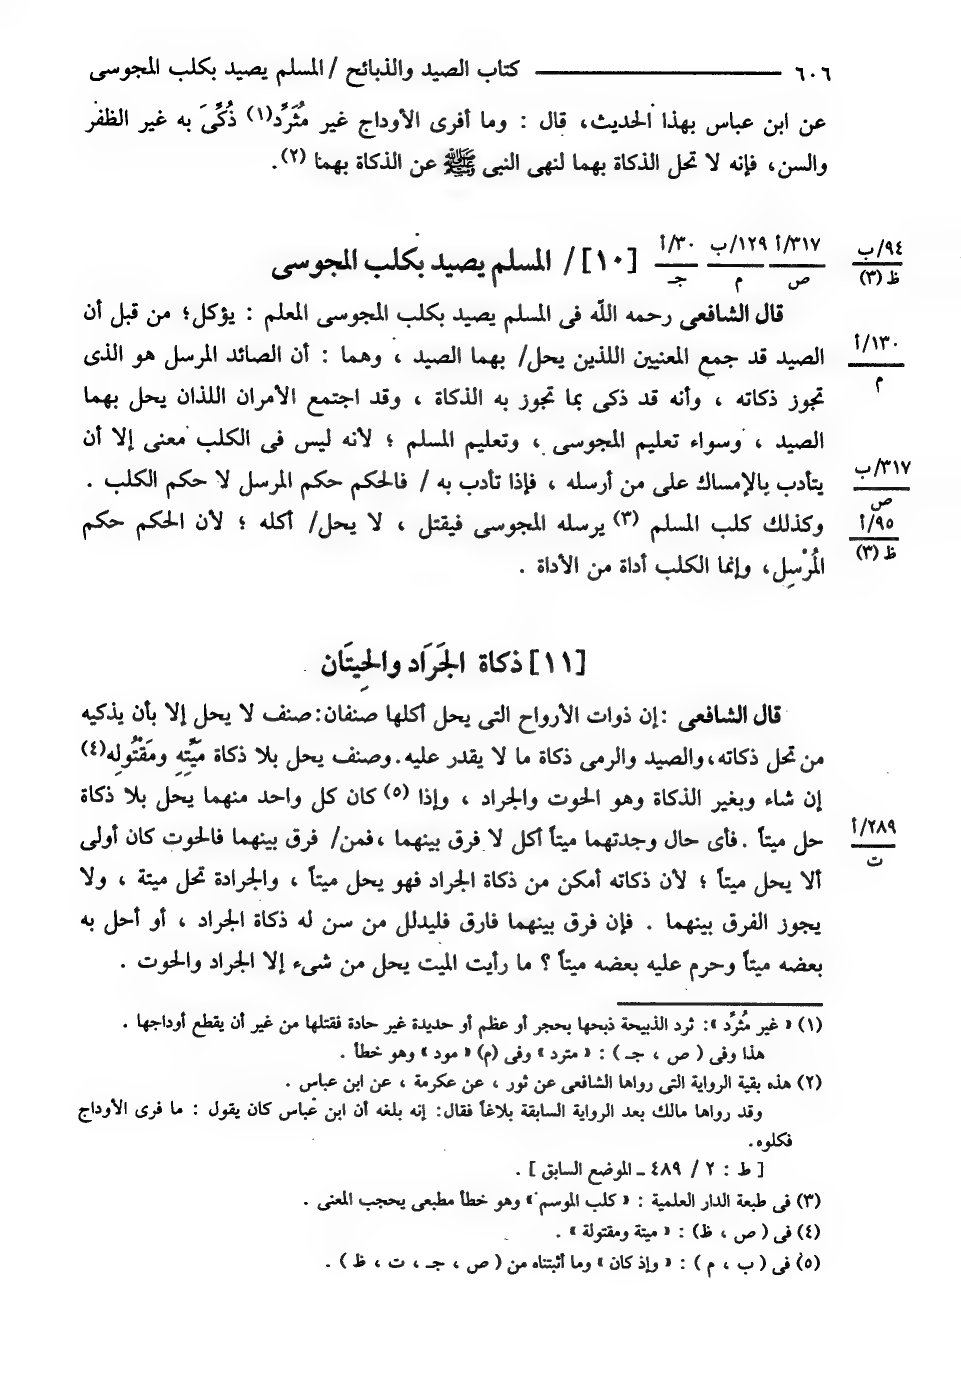 ٦٠٦ كتاب الصيد والذبائح / المسلم يصيد بكلب المجوسى
عن ابن عباس بهذا الحديث، قال : وما أفرى الأوداج غير مُثَرِّد(١) ذُكِّىَ به غير الظفر
والسن، فإنه لا تحل الذكاة بهما لنهى النبى ﷺ عن الذكاة بهما (٢).
[١٠] / المسلم يصيد بكلب المجوسى
٣٠/أ
جـ
١٢٩/ب
م
٣١٧/أ
ص
٩٤/ب
ظ (٣)
قال الشافعى رحمه الله فى المسلم يصيد بكلب المجوسى المعلم : يؤكل؛ من قبل أن
الصيد قد جمع المعنيين اللذين يحل/ بهما الصيد ، وهما : أن الصائد المرسل هو الذى
١٣٠/أ
م
تجوز ذكاته ، وأنه قد ذكى بما تجوز به الذكاة ، وقد اجتمع الأمران اللذان يحل بهما
الصيد ، وسواء تعليم المجوسى ، وتعليم المسلم ؛ لأنه ليس فى الكلب معنى إلا أن
يتأدب بالإمساك على من أرسله ، فإذا تأدب به / فالحكم حكم المرسل لا حكم الكلب .
٣١٧/ب
ص
وكذلك كلب المسلم (٣) يرسله المجوسى فيقتل ، لا يحل/ أكله ؛ لأن الحكم حكم
٩٥/أ
ظ (٣)
المُرْسِل، وإنما الكلب أداة من الأداة .
[١١] ذكاة الجَرَاد والحِيتَان
قال الشافعى :إن ذوات الأرواح التى يحل أكلها صنفان:صنف لا يحل إلا بأن يذكيه
من تحل ذكاته،والصيد والرمى ذكاة ما لا يقدر عليه.وصنف يحل بلا ذكاة مَيِّتِهِ ومَقْتُولِه(٤)
إن شاء وبغير الذكاة وهو الحوت والجراد ، وإذا (٥) كان كل واحد منهما يحل بلا ذكاة
حل ميتاً .فأى حال وجدتهما ميتاً أكل لا فرق بينهما ،فمن/ فرق بينهما فالحوت كان أولى
٢٨٩/أ
ت
ألا يحل ميتاً ؛ لأن ذكاته أمكن من ذكاة الجراد فهو يحل ميتاً ، والجرادة تحل ميتة ، ولا
يجوز الفرق بينهما . فإن فرق بينهما فارق فليدلل من سن له ذكاة الجراد ، أو أحل به
بعضه ميتاً وحرم عليه بعضه ميتاً ؟ ما رأيت الميت يحل من شىء إلا الجراد والحوت .
(١) « غير مُثَرِّد »: ثرد الذبيحة ذبحها بحجر أو عظم أو حديدة غير حادة فقتلها من غير أن يقطع أوداجها .
هذا وفى ( ص ، جـ ) : « مترد » وفى (م) « مود » وهو خطأ .
(٢) هذه بقية الرواية التى رواها الشافعى عن ثور ، عن عكرمة ، عن ابن عباس .
وقد رواها مالك بعد الرواية السابقة بلاغاً فقال: إنه بلغه أن ابن عباس كان يقول : ما فرى الأوداج
فكلوه.
[ ط : ٢ / ٤٨٩ ـ الموضع السابق ] .
(٣) فى طبعة الدار العلمية : « كلب الموسم » وهو خطأ مطبعى يحجب المعنى .
(٤) فى ( ص ، ظ) : « ميتة ومقتولة » .
(٥) فى ( ب ، م ) : « وإذ كان » وما أثبتناه من ( ص ، جـ ، ت ، ظ ) .